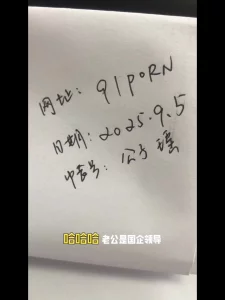 网址: 91PORN
日期: 2025.9.5
中古号: 公子瑾
哈哈哈 老公是国企领导